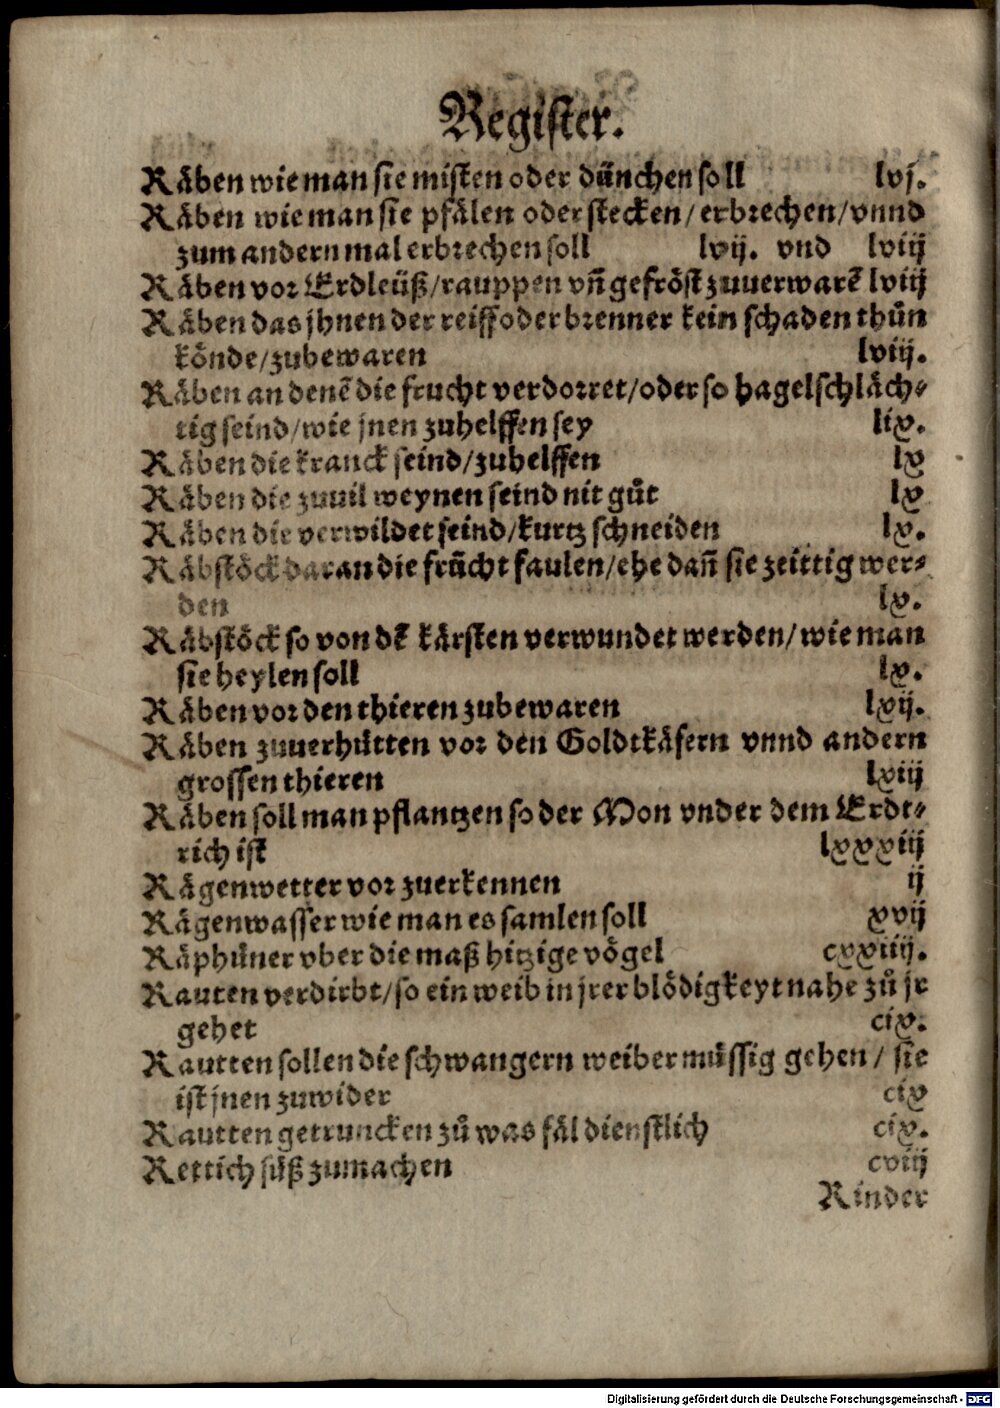 Register.
Räben wie man sie misten oder dünchen soll lvj.
Räben wie man sie pfälen oder stecken/ erbrechen/ vnnd
zum andern mal erbrechen soll lvij. vnd lviij
Räben vor Erdleüß/ rauppen vñ gefröst zuuerwarẽ lviij
Räben das jhnen der reiff oder brenner kein schaden thůn
könde/ zubewaren lviij.
Räben an denẽ die frucht verdorret/ oder so hagelschläch⸗
tig seind/ wie jnen zuhelffen sey lix.
Räben die kranck seind/ zuhelffen lx
Räben die zuuil weynen seind nit gůt lx
Räben die verwildet seind/ kurtz schneiden lx.
Räbstöck daran die frücht faulen/ ehe dañ sie zeittig wer⸗
den lx.
Räbstöck so von dẽ kärsten verwundet werden/ wie man
sie heylen soll lx.
Räben vor den thieren zubewaren lxij.
Räben zuuerhütten vor den Goldtkäfern vnnd andern
grossen thieren lxiij
Räben soll man pflantzen so der Mon vnder dem Erdt⸗
rich ist lxxxiij
Rägenwetter vor zuerkennen ij
Rägenwasser wie man es samlen soll xvij
Räphüner vber die maß hitzige vögel cxxiiij.
Rauten verdirbt/ so ein weib in jrer blödigkeyt nahe zů jr
gehet cix.
Rautten sollen die schwangern weiber müssig gehen/ sie
ist jnen zuwider cix
Rautten getruncken zů was fäl dienstlich cix.
Rettich süß zumachen cviij
Rinder
Digitalisierung gefördert durch die Deutsche Forschungsgemeinschaft - DFG